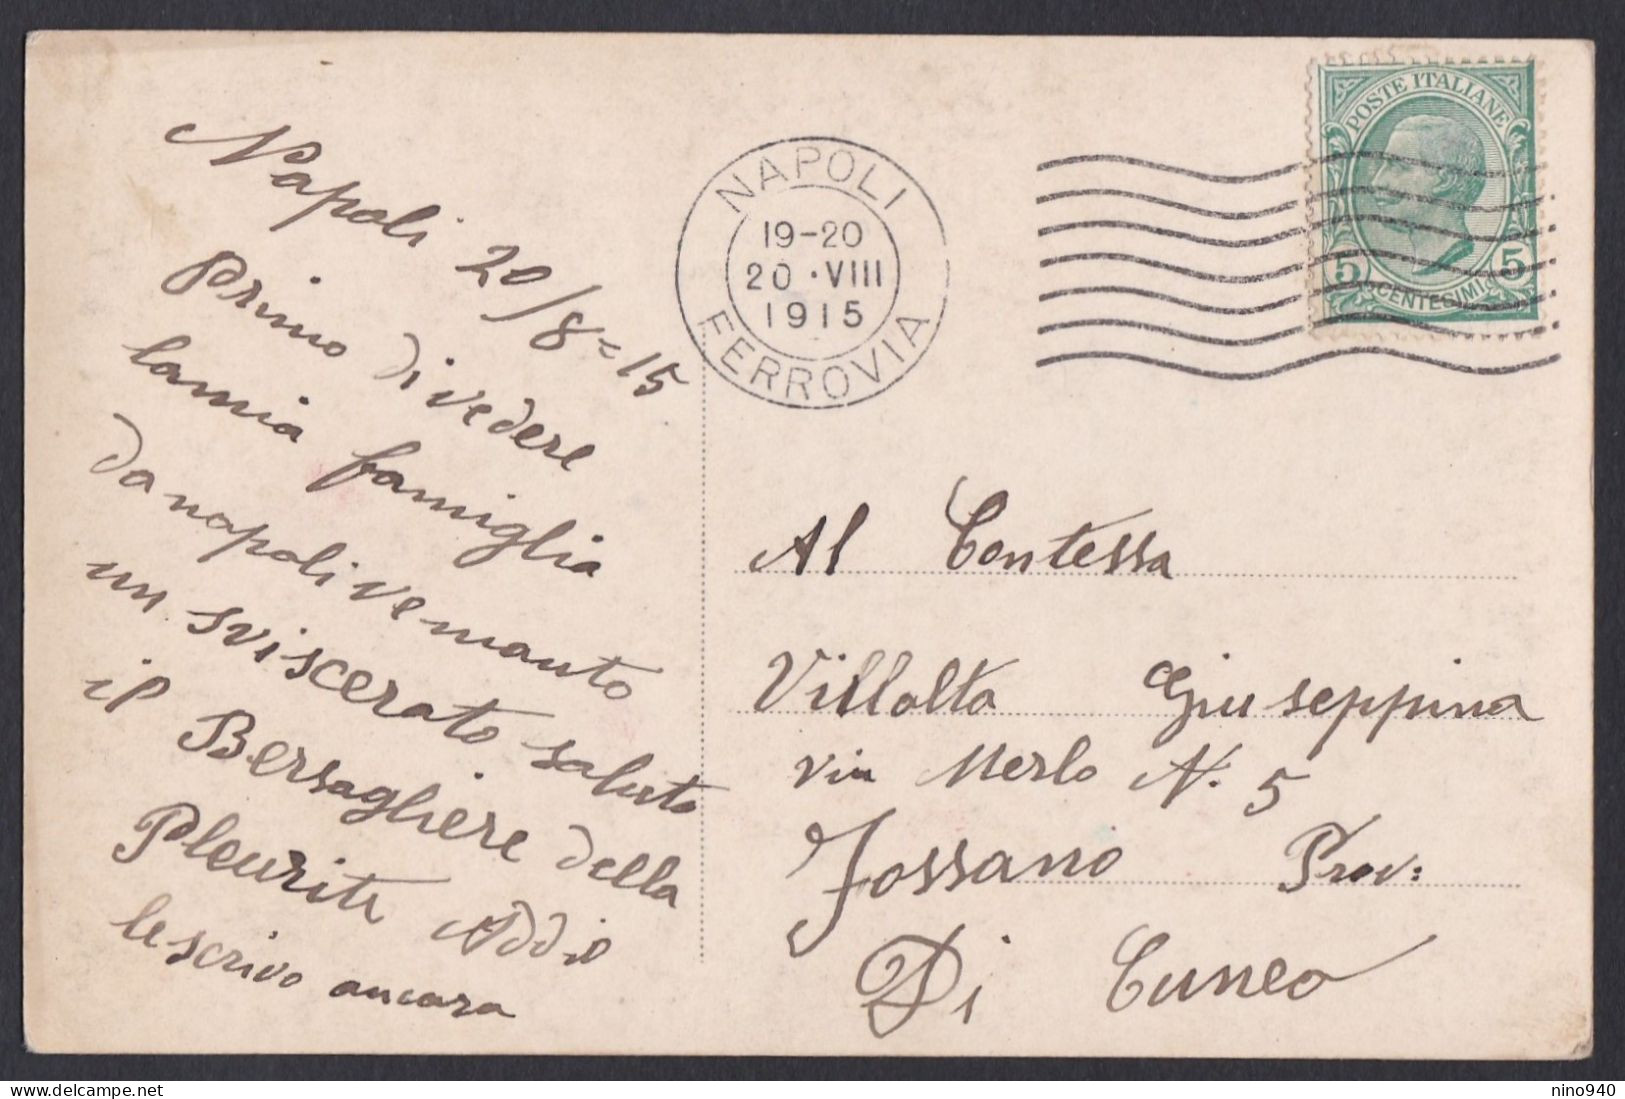 Napoli 20/8=15
Primo di vedere
lamia famiglia
da napoli ve manto
un sviscerato saluto
il Bersagliere della
Pleurite Addio
le scrivo ancora
NAPOLI
19-20
20·VIII
1915
FERROVIA
POSTE ITALIANE
5 5
CENTESIMI
Al Contessa
Villalta Giuseppina
via Merlo N. 5
Fossano Prov:
Di Cuneo
delcampe.net
nino940